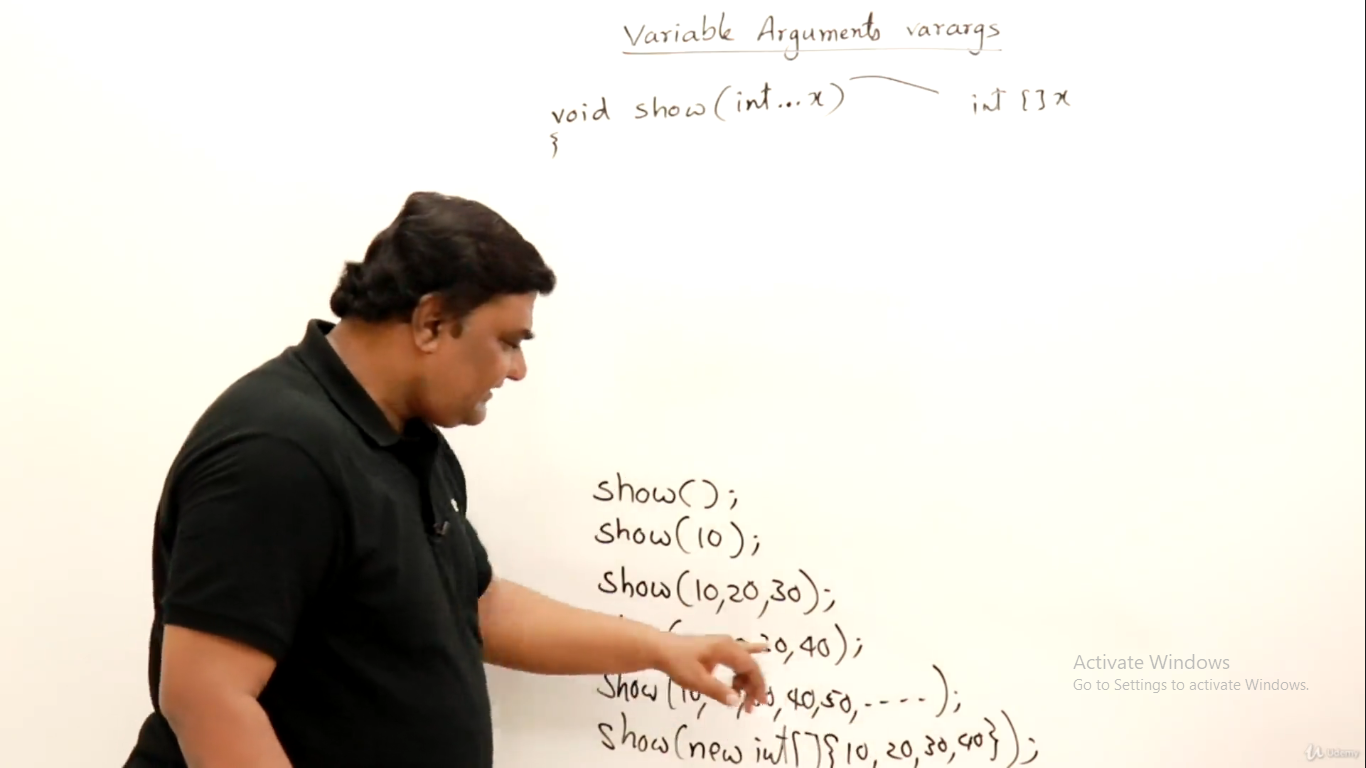 Variable Arguments varargs
void show(int...x) int []x
{
show();
show(10);
show(10,20,30);
20,40);
show(10, 40,50,----);
show(new int[]{10,20,30,40});
Activate Windows
Go to Settings to activate Windows.
Udemy